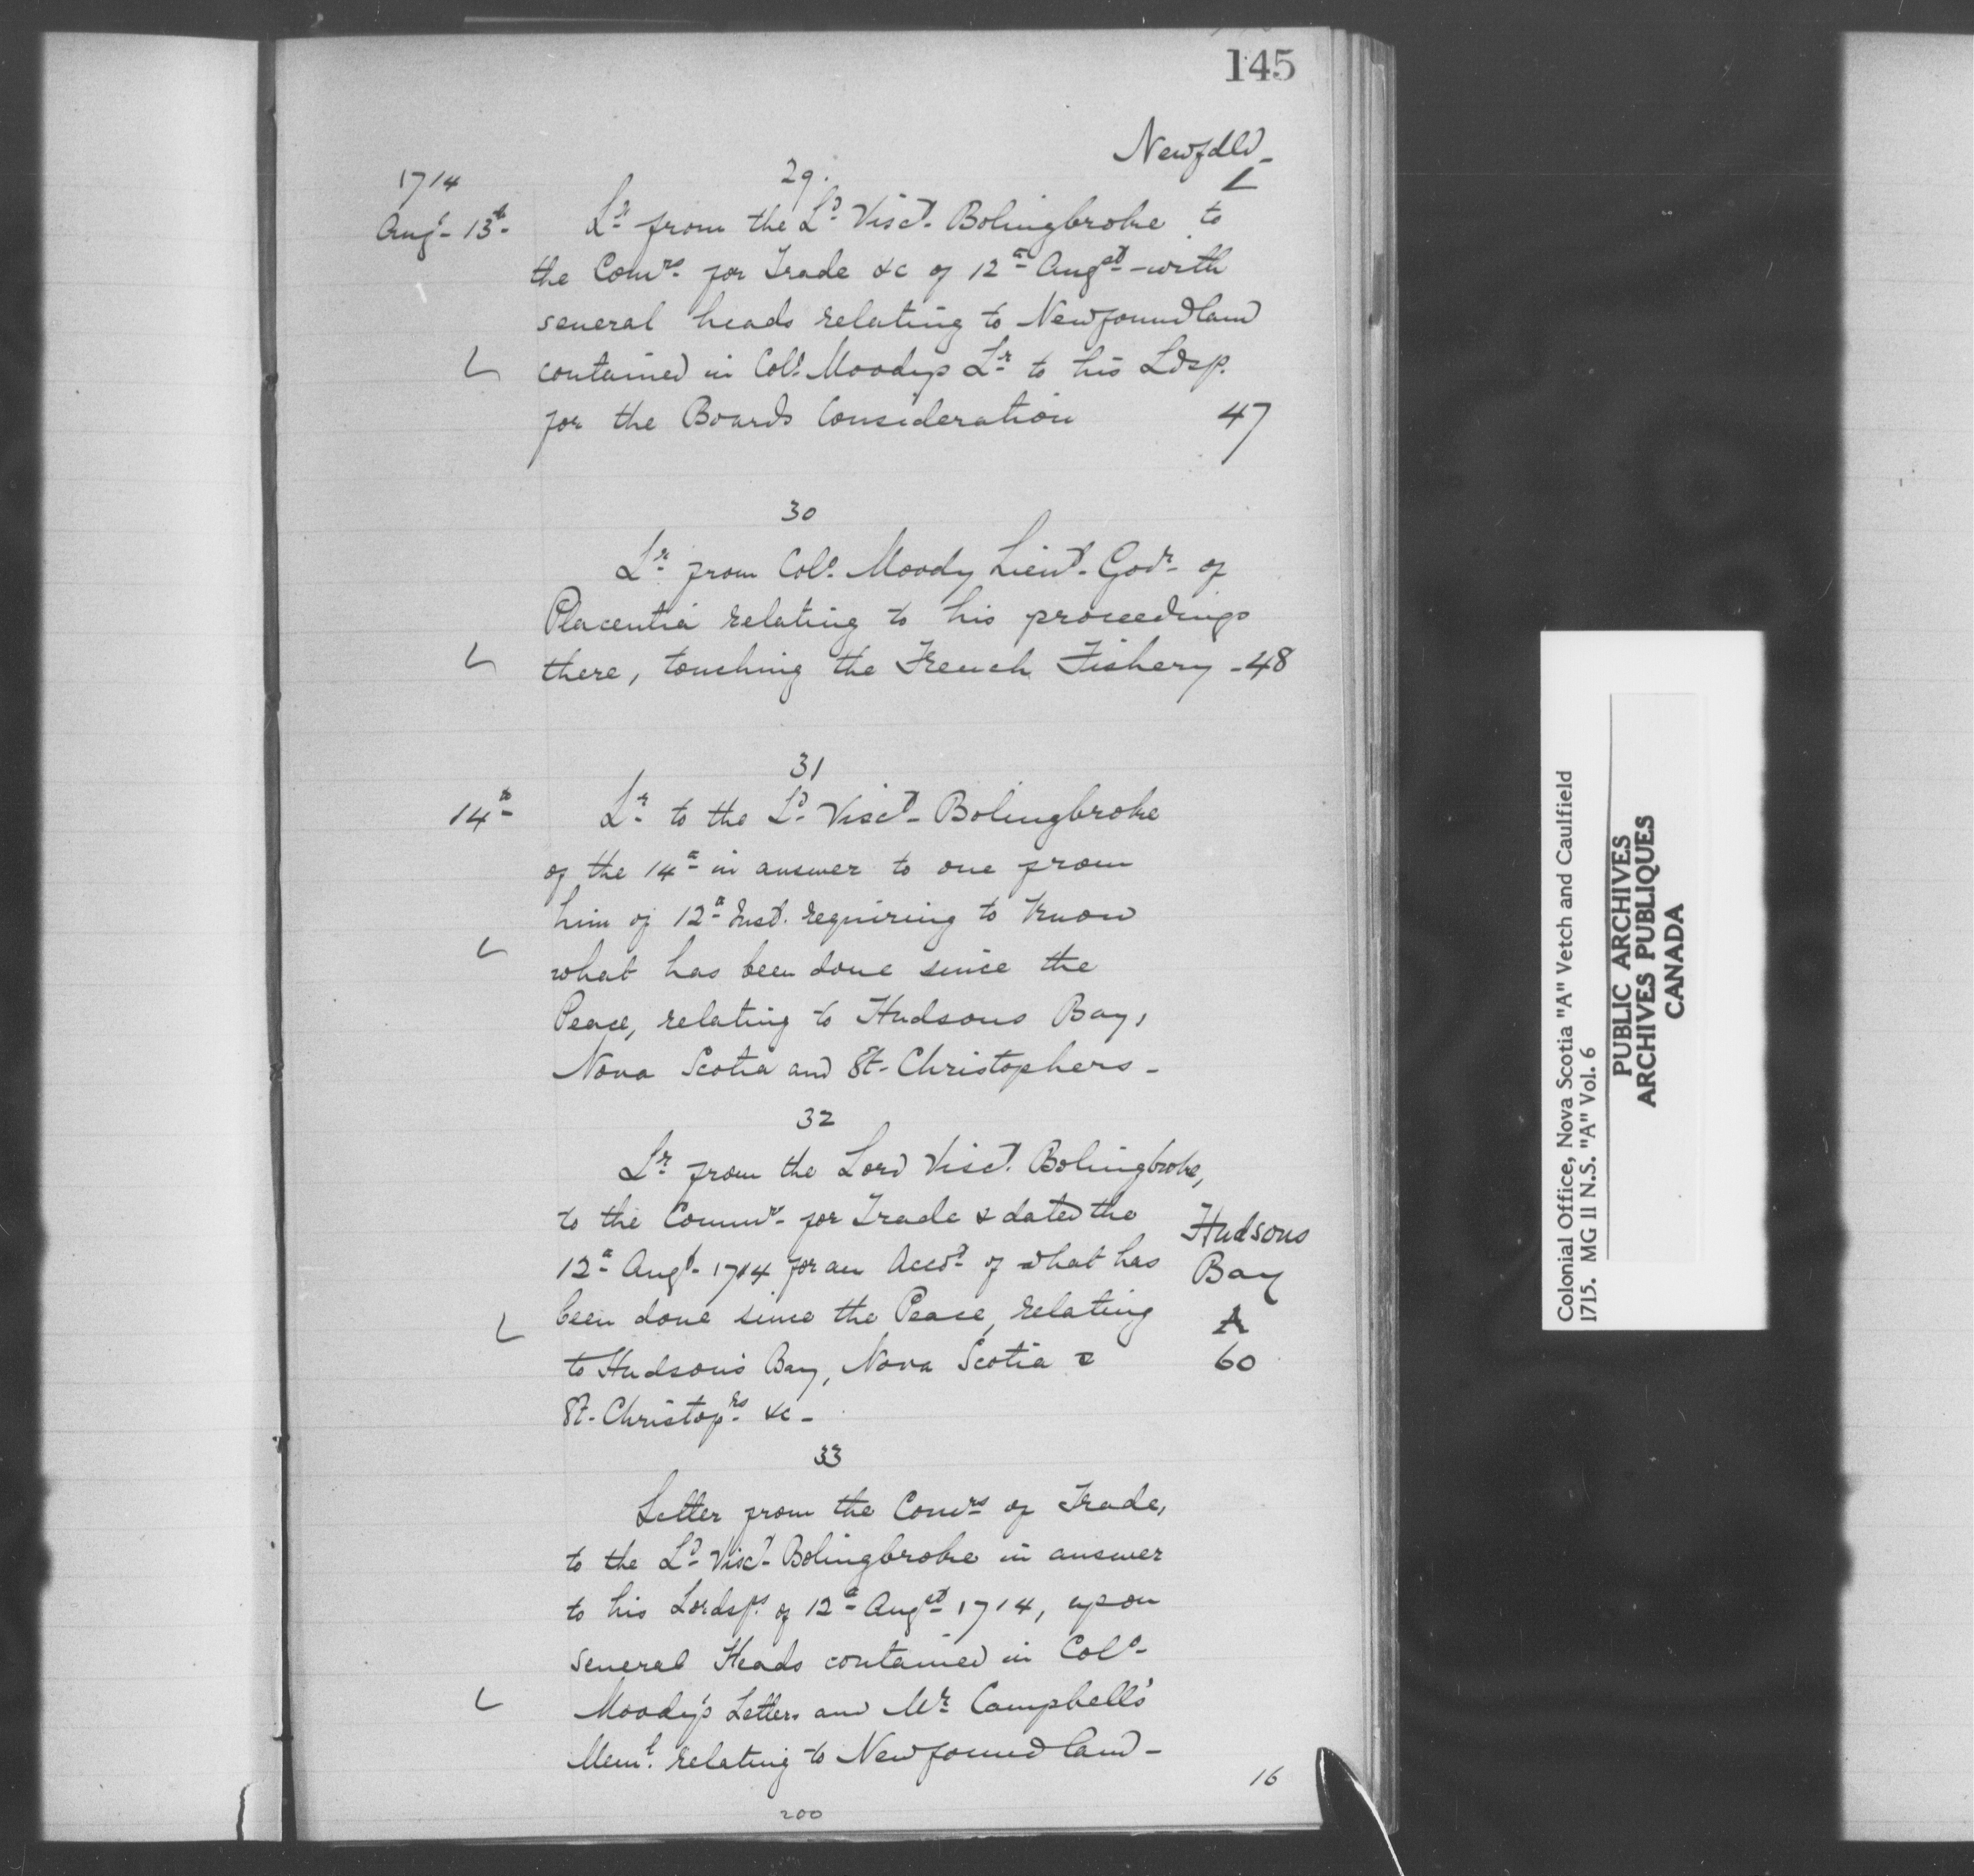 145
Newfdld -
L
1714
29.
Augt 13th Lr from the Ld Visct Bolingbroke to
the Comrs for Trade &c of 12th Augst - with
several heads relating to Newfoundland
contained in Colo. Moodys Lr to his Ldsp.
for the Boards Consideration 47
30
Lr from Colo. Moody Lieut Govr of
Placentia relating to his proceedings
there, touching the French Fishery - 48
31
14th Lr to the Ld Visct Bolingbroke
of the 14th in answer to one from
him of 12th Inst. requiring to know
what has been done since the
Peace, relating to Hudsons Bay,
Nova Scotia and St. Christophers -
32
Lr from the Lord Visct. Bolingbroke,
to the Commrs for Trade & dated the
12th Augt 1714 for an Accot of what has
been done since the Peace, relating
to Hudson's Bay, Nova Scotia &
St. Christoprs &c -
Hudsons
Bay
A
60
33
Letter from the Comrs of Trade,
to the Ld Visct Bolingbroke in answer
to his Lordsps of 12th Augst 1714, upon
several Heads contained in Colo
Moody's Letters and Mr Campbell's
Meml. relating to Newfoundland -
16
200
Colonial Office, Nova Scotia "A" Vetch and Caulfield
1715. MG 11 N.S. "A" Vol. 6
PUBLIC ARCHIVES
ARCHIVES PUBLIQUES
CANADA